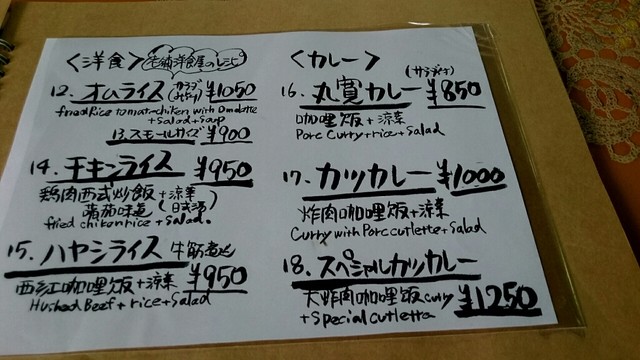 <洋食>
12. オムライス ¥1050
friedRice tomato chiken with Omelotte
+ Salad + Soup
13. スモールサイズ ¥900
14. チキンライス ¥950
鶏肉西式炒飯 + 涼菜
(日式酒)
fried chiken rice + Salad.
15. ハヤシライス 牛筋煮込
¥950
咖哩飯 + 涼菜
Hushed Beef + rice + Salad
<カレー>
(サラダ付)
16. 丸寛カレー ¥850
咖哩飯 + 涼菜
Porc Curry + rice + Salad
17. カツカレー ¥1000
炸肉咖哩飯 + 涼菜
Curry with Porc cutlette + Salad
18. スペシャルカツカレー
大炸肉咖哩飯 curry ¥1250
+ Special cutletta